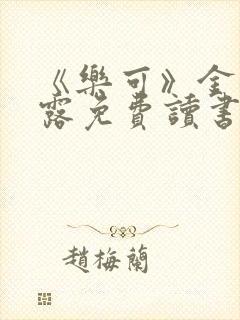 《樂可》金
露免費讀書
趙梅蘭